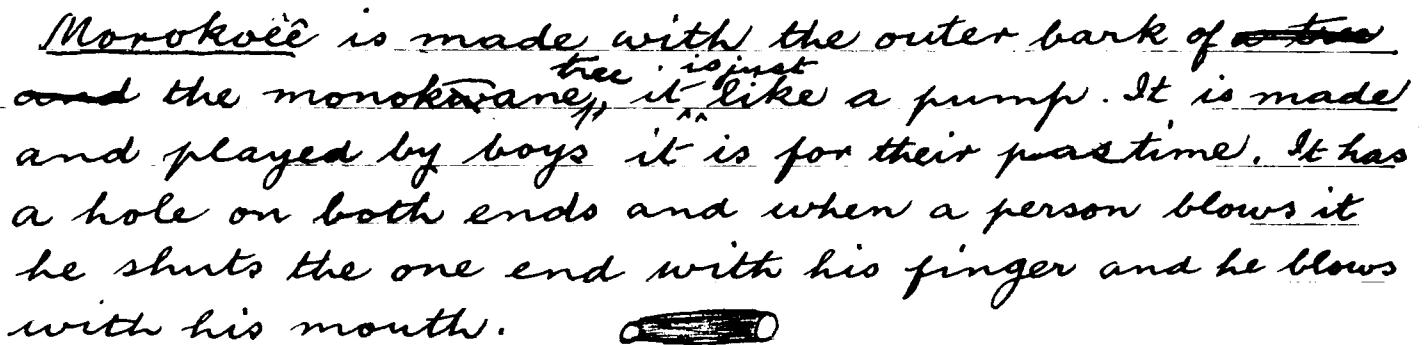 Morokoëê is made with the outer bark of a tree
and the monokwane tree, it is just like a pump. It is made
and played by boys it is for their pastime. It has
a hole on both ends and when a person blows it
he shuts the one end with his finger and he blows
with his mouth.